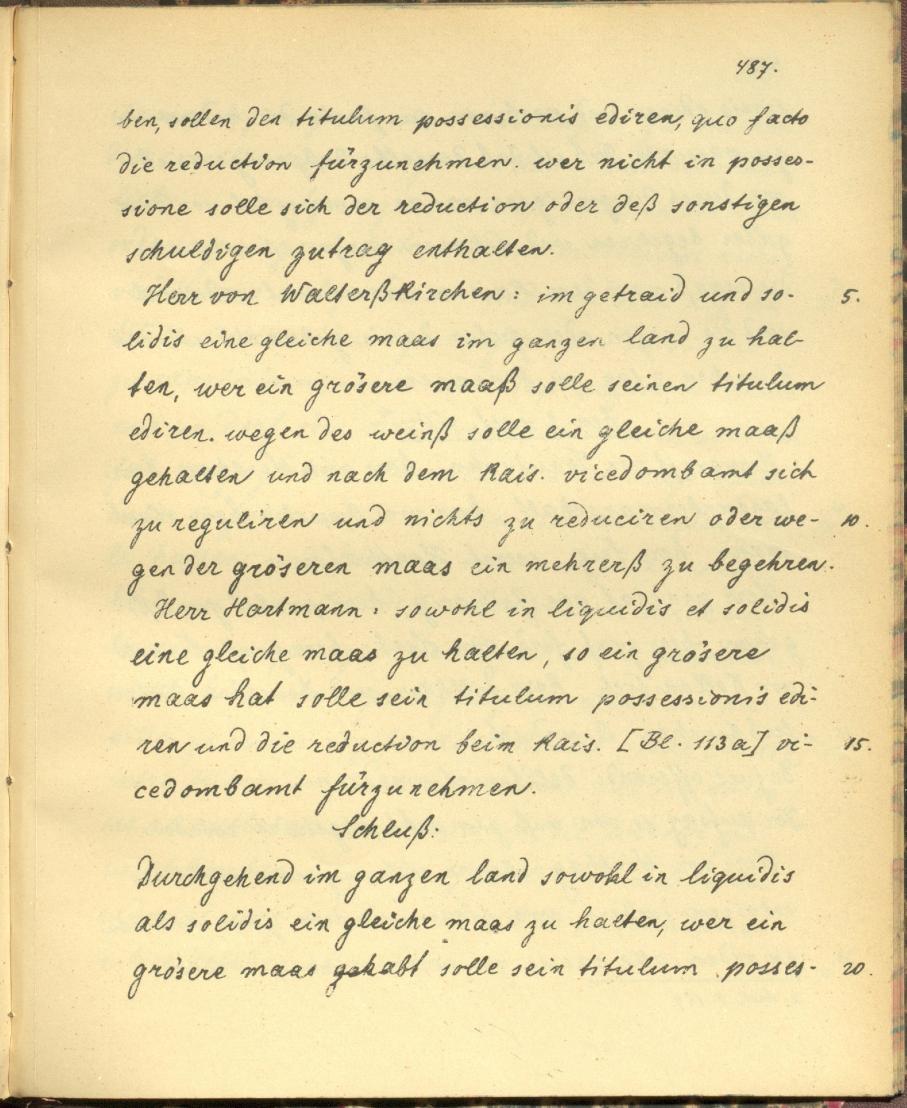 487.
ben, sollen den titulum possessionis ediren, quo facto
die reduction fürzunehmen. wer nicht in posses-
sione solle sich der reduction oder deß sonstigen
schuldigen zutrag enthalten.
Herr von Walterßkirchen: im getraid und so- 5.
lidis eine gleiche maas im ganzen land zu hal-
ten, wer ein grösere maaß solle seinen titulum
ediren. wegen des weinß solle ein gleiche maaß
gehalten und nach dem Kais. vicedombamt sich
zu reguliren und nichts zu reduciren oder we- 10.
gen der gröseren maas ein mehrerß zu begehren.
Herr Hartmann: sowohl in liquidis et solidis
eine gleiche maas zu halten, so ein grösere
maas hat solle sein titulum possessionis edi-
ren und die reduction beim Kais. [Bl. 113a] vi- 15.
cedombamt fürzunehmen.
Schluß:
Durchgehend im ganzen land sowohl in liquidis
als solidis ein gleiche maas zu halten, wer ein
grösere maas gehabt solle sein titulum posses- 20.